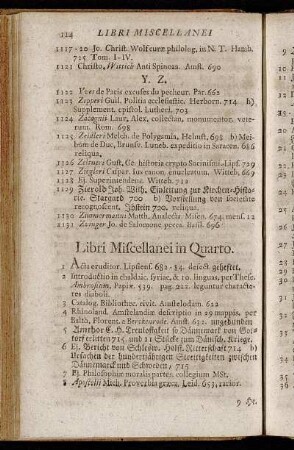 124 LIBRI MISCELLANEI
1117-20 Jo. Christ. Wolf curæ philolog. in N. T. Hamb.
715 Tom. I-IV.
1121 Christo. Wittich Anti Spinosa. Amst. 690
Y. Z.
1122 de Paris excuse du pecheur. Par. 662
1123 Zepperi Guil. Politia ecclesiastic. Herborn. 714 b)
Supplement. epistol. Lutheri. 703
1124 Zacagnii Laur. Alex. collectan. monumentor. vete-
rum. Rom. 698
1125 Zeidleri Melch. de Polygamia, Helmst. 698 b) Mei-
bom de Duc. Brunsv. Luneb. expeditio in Saracen. 686
reliqua.
1126 Zeltneri Gust. Ge. historia crypto Socinismi. Lips. 729
1127 Ziegleri Caspar. Jus canon. enucleatum. Witteb. 669
1128 Ej. Superintendens. Witteb. 712
1129 Zierold Joh. Wilh. Einleitung zur Kirchen-Histo-
rie. Stargard 700 b) Vorstellung von societate
recognoscent. 700. reliqua.
1130 Zimmermanni Matth. Analecta. Misen. 674. mens. 12
1131 Jo. de Salomone. Basil. 696
Libri Miscellanei in Quarto.
1 Acta eruditor. Lipsiens. 682-84. defect. geheftet.
2 Introductio in chaldaic. syriac. & 10. linguas, per Thes.
Ambrosium. Papiæ. 539. pag. 212. leguntur characte-
res diaboli.
3 Catalog. Bibliothec. civit. Amstelodam. 622
4 Rhinoland. Amstelandiæ descriptio in 29 mappis, per
Balth. Florent. a Berckenrode. Amst. 622. ungebunden
5 Antwort C. H. so Dännemarc von Got-
torf erlitten 715. und 11 Stücke zum Dänisch. Kriege.
6 Ej. Bericht von Schlesw. Holst. Ritterschaft 714 b)
Ursachen der hundertjährigen Streitigkeiten zwischen
Dännemarck und Schweden, 715
7 Ej. Philosophiæ moralis partes. collegium MSt.
8 Apostolii Mich. Proverbia græca. Leid. 653. rarior.
9